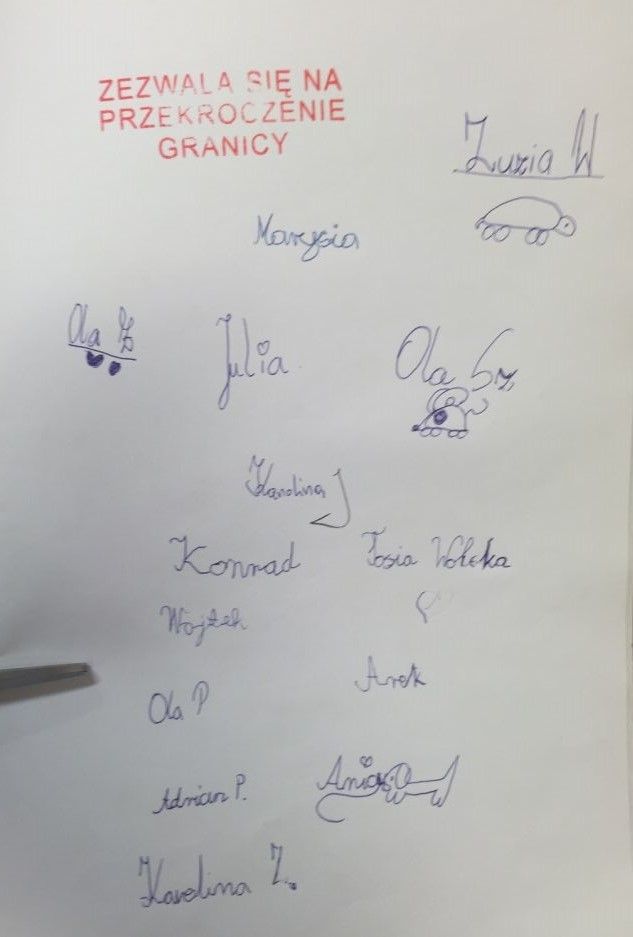 ZEZWALA SIĘ NA
PRZEKROCZENIE
GRANICY
Zuzia W
Marysia
Ola Ż
Julia
Ola Sz.
Karolina J
Konrad
Tosia Wołcka
Wojtek
Arek
Ola P
Ania
Adrian P.
Karolina Z.